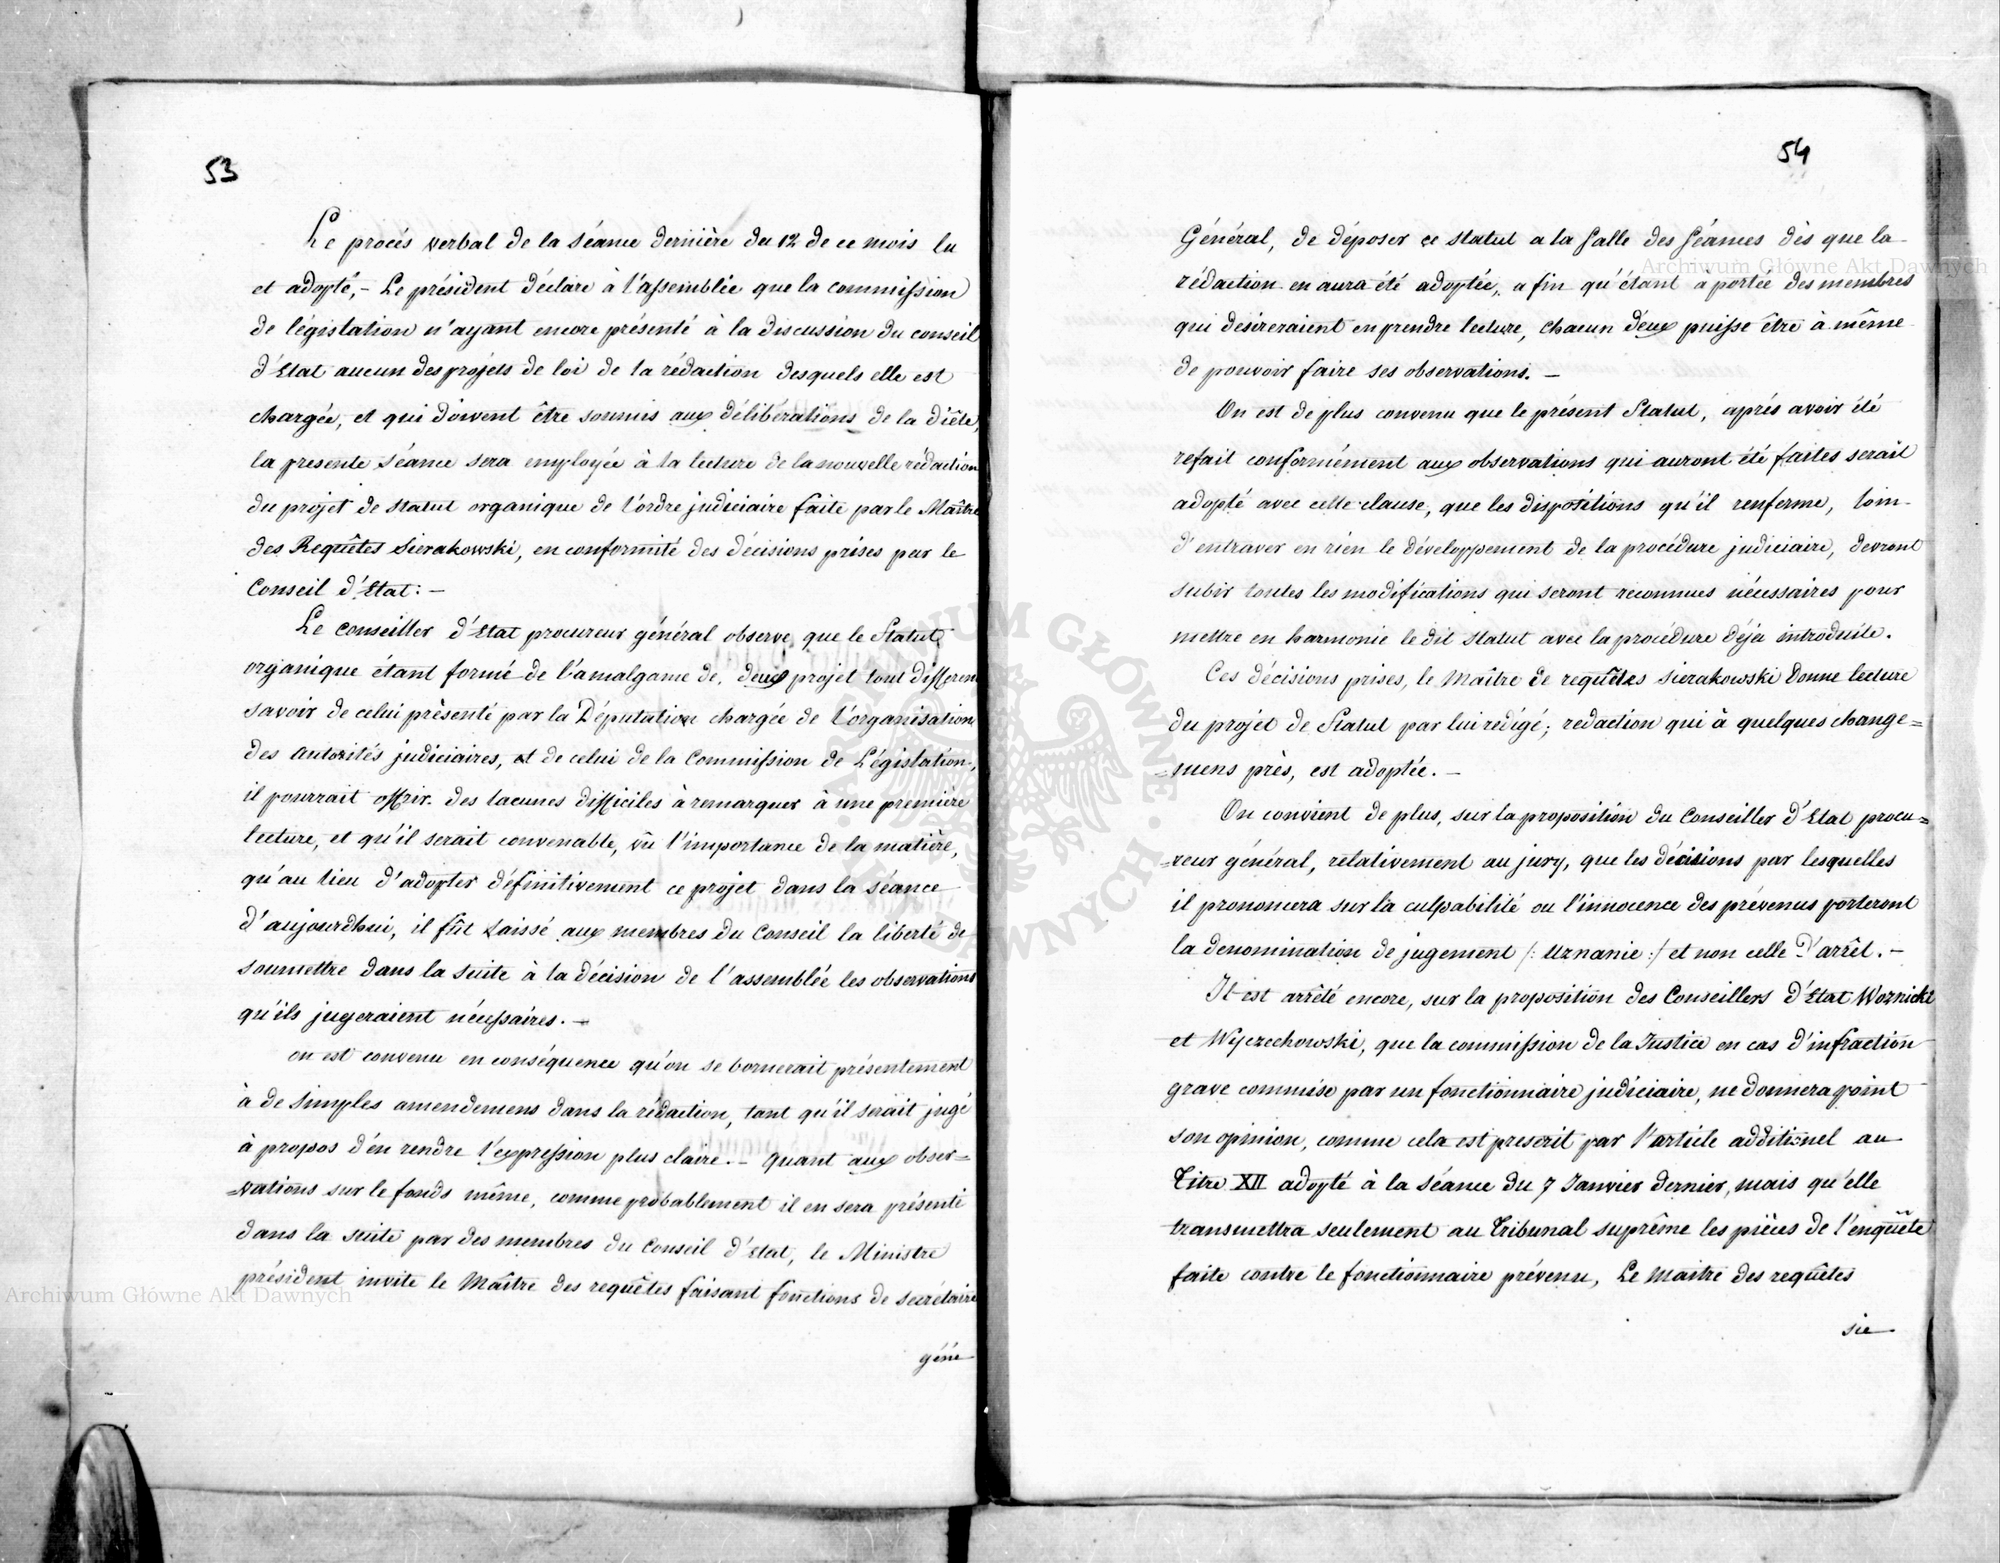 53
Le procés verbal de la séance dernière du 12 de ce mois lu
et adopté,- Le président déclare à l'assemblée que la commission
de législation n'ayant encore présenté à la discussion du conseil
d'Etat aucun des projéts de loi de la rédaction desquels elle est
chargée, et qui doivent être soumis aux délibérations de la diète,
la presente séance sera employée à la lecture de la nouvelle rédaction
du projet de statut organique de l'ordre judiciaire faite par le Maître
des Requêtes Sierakowski, en conformité des décisions prises par le
Conseil d'Etat: -
Le conseiller d'Etat procureur général observe, que le Statut
organique étant formé de l'amalgame de, deux projet tout differen
savoir de celui présenté par la Députation chargée de l'organisation
des autorités judiciaires, et de celui de la Commission de Législation,
il pourrait offrir des lacunes difficiles à remarquer à une première
lecture, et qu'il serait convenable, vû l'importance de la matière,
qu'au lieu d'adopter définitivement ce projet dans la séance
d'aujourdhui, il fût laissé aux membres du Conseil la liberté de
soumettre dans la suite à la décision de l'assemblée les observations
qu'ils jugeraient nécessaires. -
on est convenu en conséquence qu'on se bornerait présentement
à de simples amendemens dans la rédaction, tant qu'il serait jugé
à propos d'en rendre l'expression plus claire. - quant aux obser=
=vations sur le fonds même, comme probablement il en sera présenté
dans la suite par des membres du Conseil d'Etat, le Ministre
président invite le Maître des requêtes faisant fonctions de secrétaire
géné
54
Général, de déposer ce statut a la Salle des Séances dès que la
rédaction en aura été adoptée, a fin qu'étant a portée des membres
qui desireraient en prendre lecture, chacun d'eux puisse être à même
de pouvoir faire ses observations. -
On est de plus convenu que le présent Statut, aprés avoir été
refait conformément aux observations qui auront été faites serait
adopté avec cette clause, que les dispositions qu'il renferme, loin
d'entraver en rien le développement de la procédure judiciaire, devront
subir toutes les modifications qui seront reconnues nécessaires pour
mettre en harmonie le dit statut avec la procédure déja introduite.
Ces décisions prises, le Maître de requêtes Sierakowski donne lecture
du projet de Statut par lui redigé; redaction qui à quelques change=
=mens près, est adoptée. -
On convient de plus, sur la proposition du Conseiller d'Etat procu=
=reur général, relativement au jury, que les décisions par lesquelles
il prononcera sur la culpabilité ou l'innocence des prévenus porteront
la denomination de jugement /: Uznanie :/ et non celle d'arrêt. -
Il est arrêté encore, sur la proposition des Conseillers d'Etat Woznicki
et Wyczechowski, que la commission de la Justice en cas d'infraction
grave commise par un fonctionnaire judiciaire, ne donnera point
son opinion, comme cela est prescrit par l'article additionel au
Titre XII adopté à la séance du 7 Janvier dernier, mais qu'elle
transmettra seulement au Tribunal suprême les pièces de l'enquête
faite contre le fonctionnaire prévenu, Le Maitre des requêtes
sie
Archiwum Główne Akt Dawnych
Archiwum Główne Akt Dawnych
ARCHIWUM GŁÓWNE AKT DAWNYCH